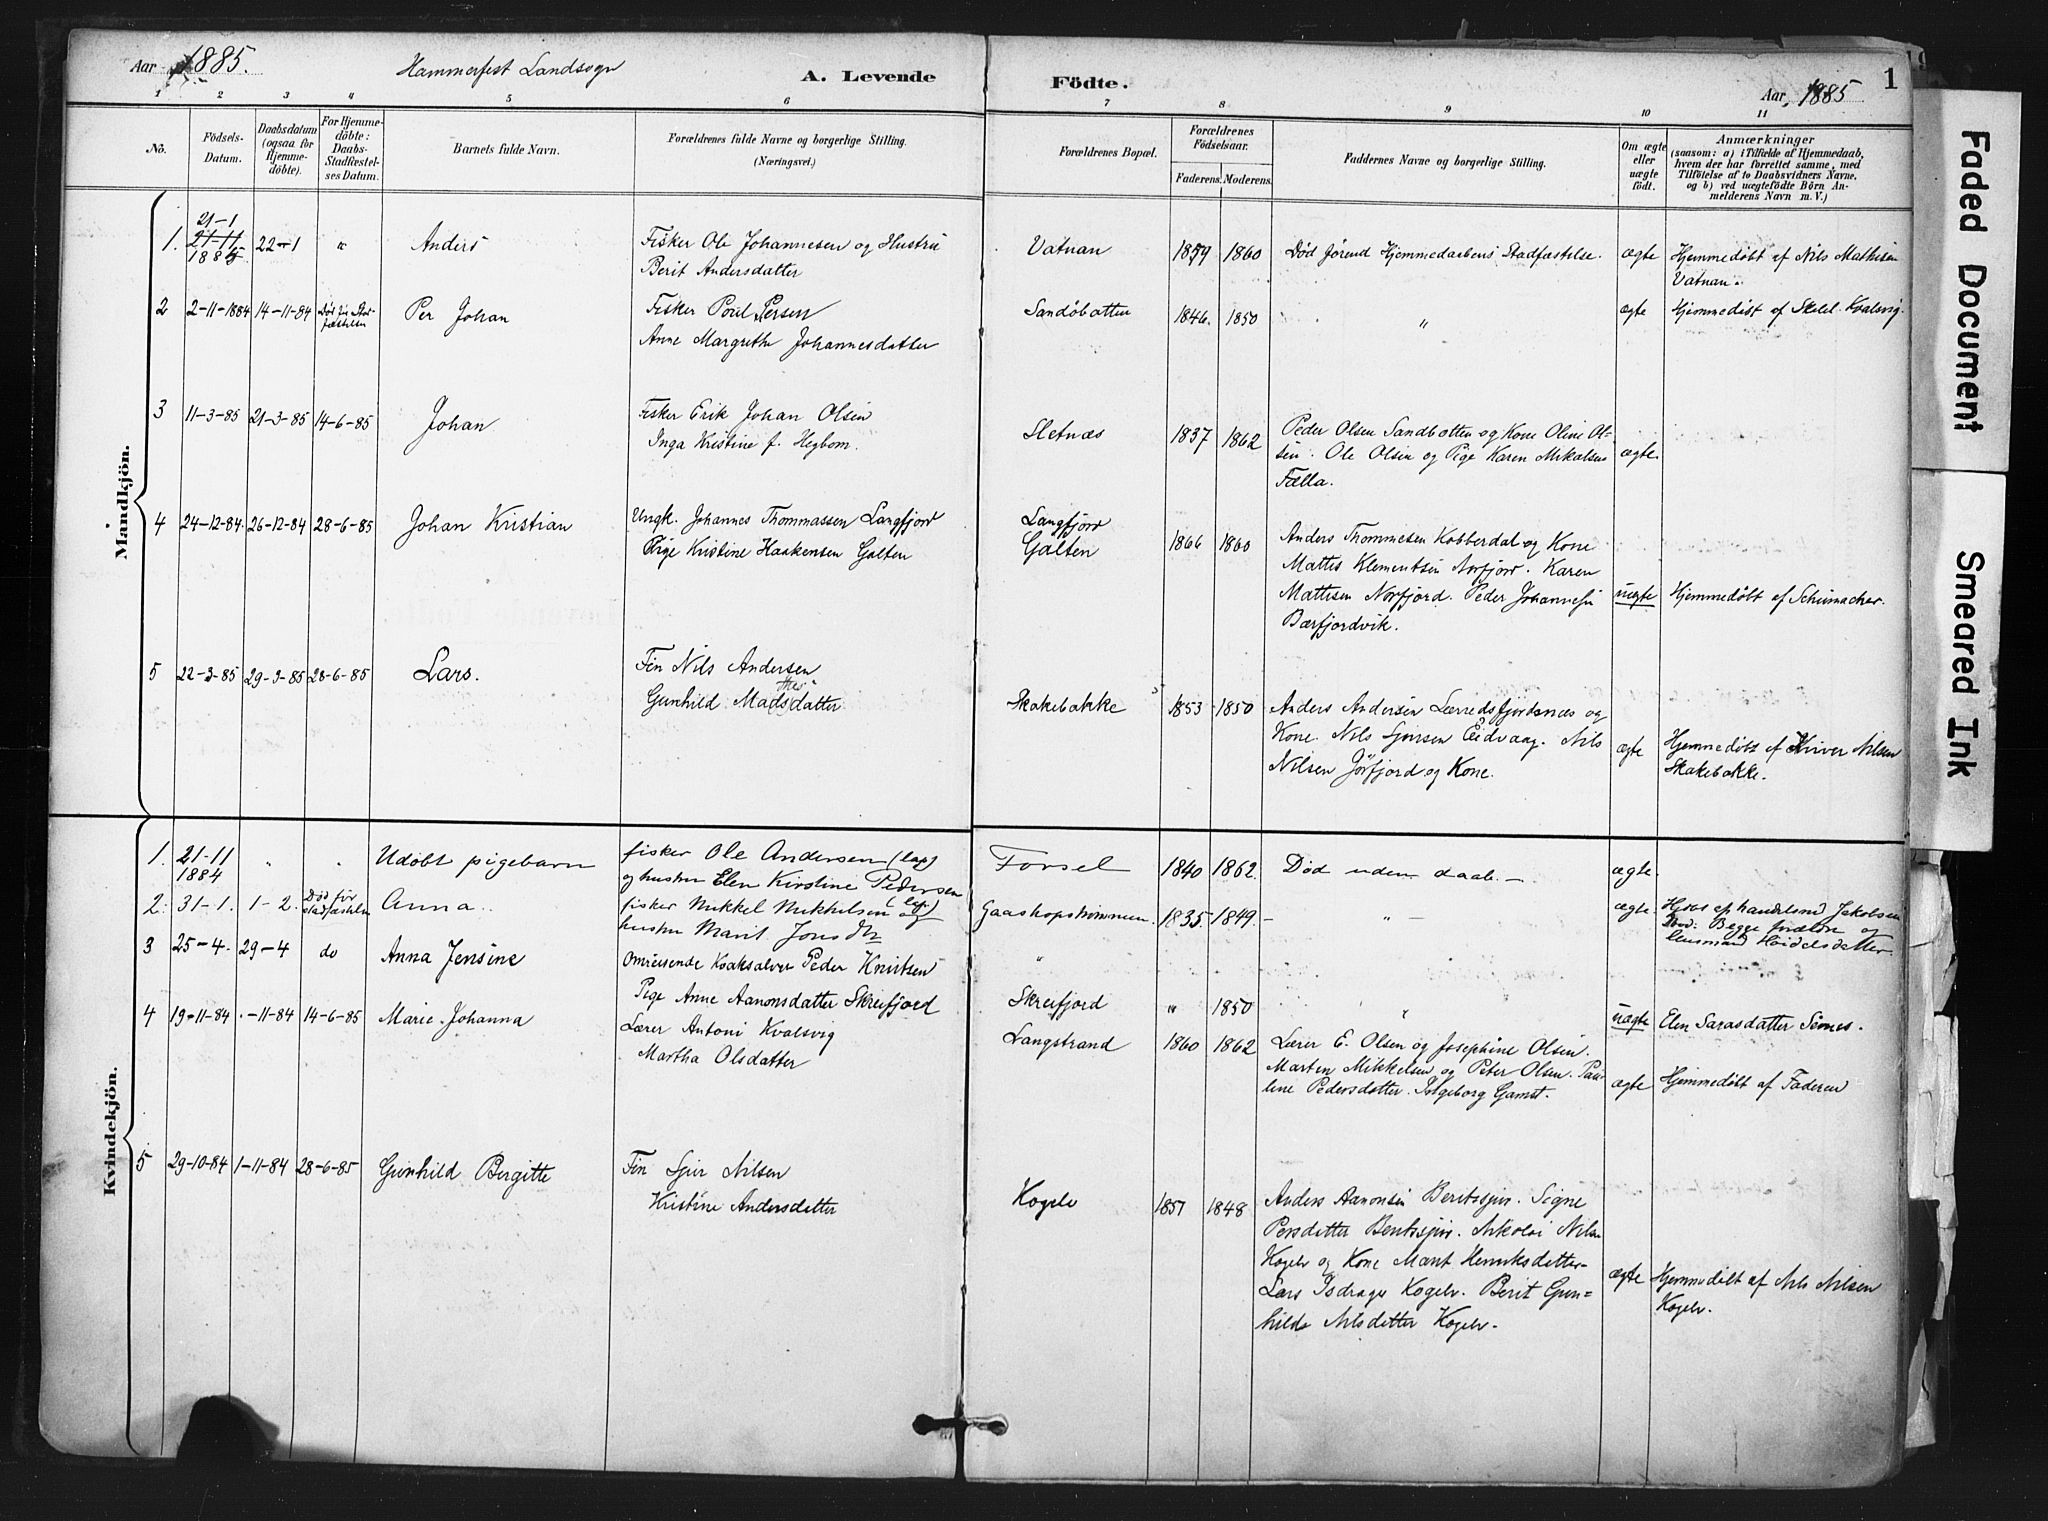 Aar 1885. Hammerfest Landsogn A. Levende Födte. Aar 1885 1
1 2 3 4 5 6 7 8 9 10 11
No. Födsels-Datum. Daabsdatum (ogsaa for Hjemmedöbte). For Hjemmedöbte: Daabs-Stadfæstelses Datum. Barnets fulde Navn. Forældrenes fulde Navne og borgerlige Stilling. (Næringsvei.) Forældrenes Bopæl. Forældrenes Födselsaar. Faderens. Moderens. Faddernes Navne og borgerlige Stilling. Om ægte eller uægte födt. Anmærkninger (saasom: a) i Tilfælde af Hjemmedaab, hvem der har forrettet samme, med Tilföielse af to Daabsvidners Navne, og b) ved uægtefödte Börn Anmelderens Navn m. V.)
Mandkjön.
1. 21-1 21-11 1885 22-1 " Anders Fisker Ole Johannesen og Hustru Vatnan 1859 1860 Död förend Hjemmedaabens Stadfæstelse. ægte Hjemmedöbt af Nils Mathisen
Berit Andersdatter Vatnan.
2 2-11-1884 14-11-84 Död för Stadfæstelsen Per Johan Fisker Poul Persen Sandöbotten 1846. 1850 " ægte Hjemmedöbt af Kvalsvig.
Anne Margrethe Johannesdatter
3 11-3-85 21-3-85 14-6-85 Johan Fisker Erik Johan Olsen Sletnæs 1837 1862 Peder Olsen Sandbotten og Kone Oline Ol-
Inga Kristine f. Hegbom. sen. Ole Olsen og Pige Karen Mikalsen ægte.
Fælla.
4 24-12-84. 26-12-84 28-6-85 Johan Kristian Ungk. Johannes Thommassen Langfjord Langfjord
Pige Kristine Haakensen Galten Galten 1866 1860 Anders Thommesen Kobberdal og Kone
Mattis Klementsen Norfjord. Karen
Mathisen Norfjord. Peder Johannesen uægte Hjemmedöbt af Schumacher.
Bærfjordvik.
5 22-3-85 29-3-85 28-6-85 Lars. Fin Nils Andersen
Gunhild Madsdatter Skakebakke 1853 1850 Anders Andersen Lerredsfjordsnæs og
Kone. Nils Sjursen Eidvaag. Nils ægte Hjemmedöbt af Nilsen
Nilsen Jörfjord og Kone. Skakebakke.
Kvindekjön.
1. 21-11 1884 " " Udöbt pigebarn fisker Ole Andersen (lap) Forsøl 1840 1862. Död uden daab. - ægte.
og hustru Elen Kirstine Pedersen
2. 31-1. 1-2. Död för stadfæstelsen Anna. fisker Mikkel Mikkelsen (lap) og Gaashopstrømmen. 1835. 1849. - " - ægte. Hjdbt af handelsmd Jakobsen
hustru Marit Jonsdtr
3 25-4. 29-4 do Anna Jensine Omreisende Kvaksalver Peder Knutsen " "
Pige Anne Aanonsdatter Skreifjord Skreifjord " 1850 " uægte Elen Sarasdatter
4 19-11-84 -11-84 14-6-85 Marie Johanna Lærer Antoni Kvalsvig Langstrand 1860 1862 Lærer E. Olsen og Josephine Olsen.
Martha Olsdatter Marten Mikkelsen og Peter Olsen. Pau-
line Pedersdatter. Ingeborg Gamst. ægte Hjemmedöbt af Faderen
5 29-10-84 1-11-84 28-6-85 Gunhild Bergitte Fin Sjur Nilsen
Kristine Andersdatter Kogelv 1851 1848 Anders Aanonsen Beritssjur. Signe
Persdatter Beritssjur. Nikolai Nilsen
Kogelv og Kone Marit Henriksdatter
Lars Isdragr Kogelv. Berit Gun- ægte Hjemmedöbt af Nils Nilsen
hilds Nilsdatter Kogelv. Kogelv.
Faded Document
Smeared Ink